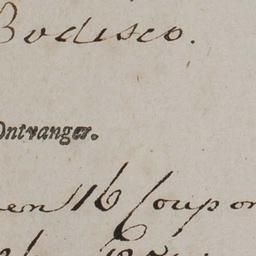 Bodisco.
Ontvanger.
en 16 Coupon